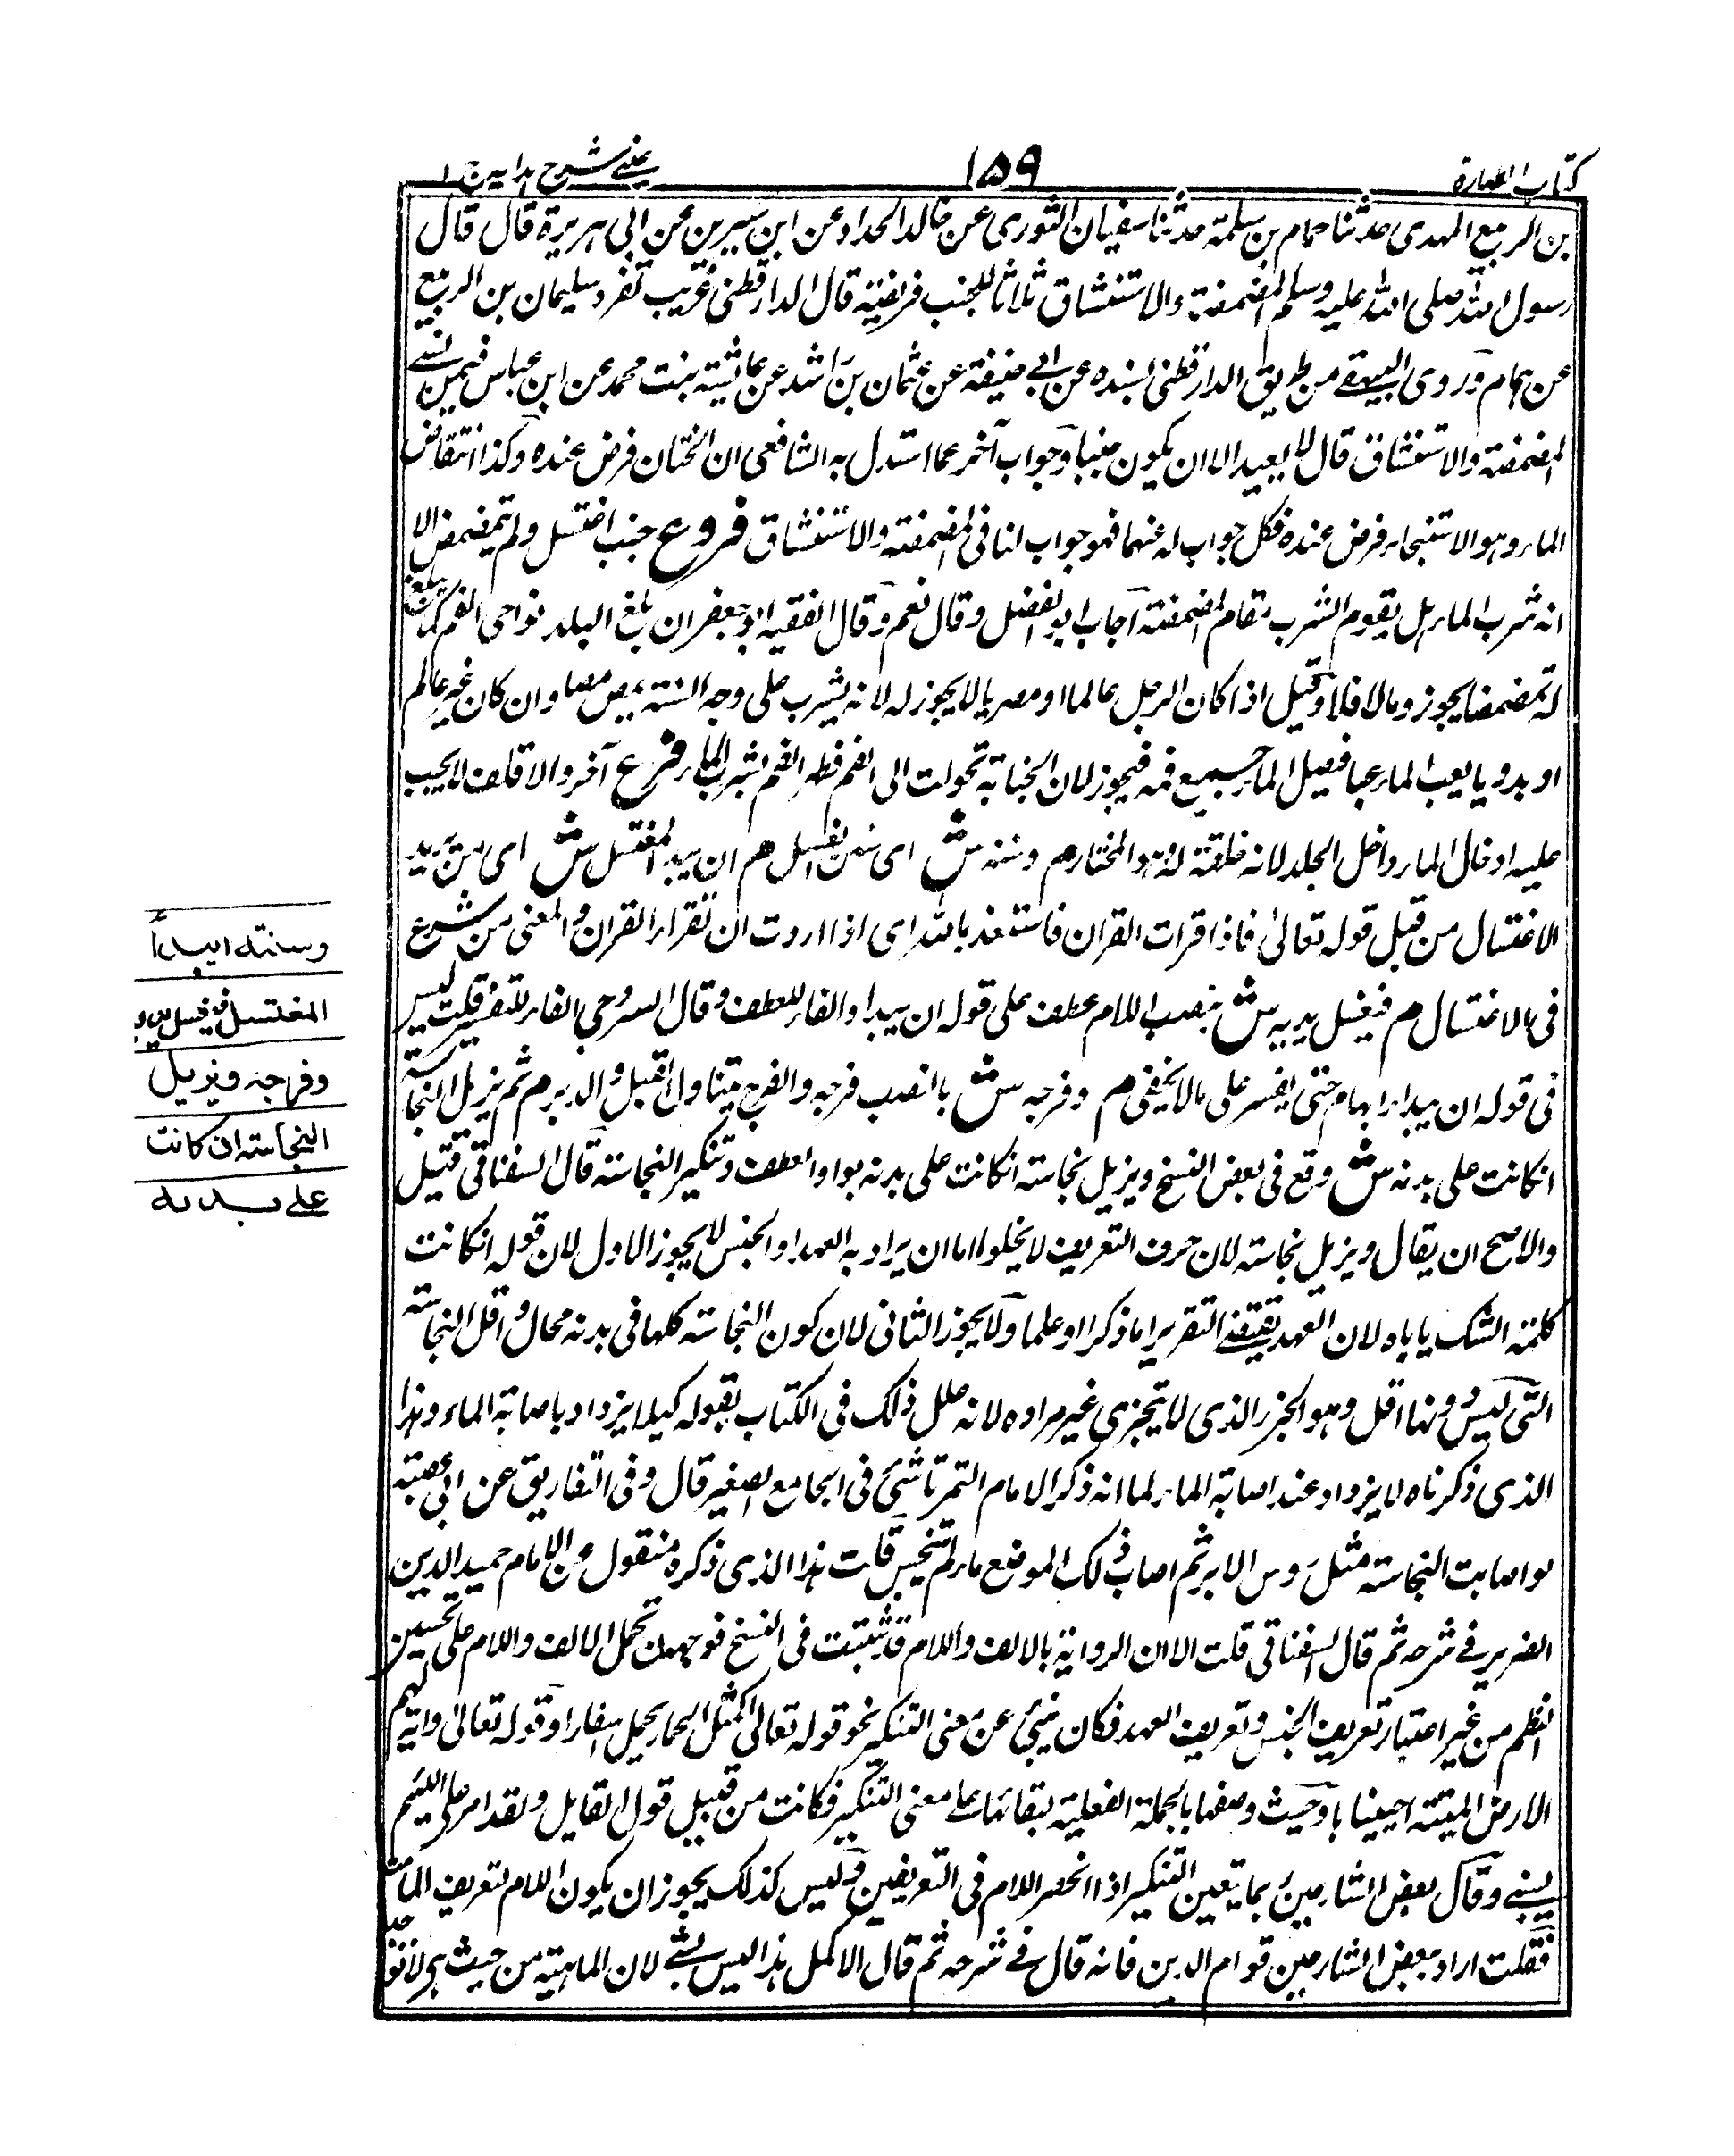 كتاب الطهارة
١٥٩
عيني شرح هداية ج ١
بن الربيع المهدى حدثنا همام بن سلمة حدثنا سفيان الثورى عن خالد الحداد عن ابن سيرين عن ابى هريرة قال قال
رسول الله صلى الله عليه وسلم المضمضة والاستنشاق ثلاثا للجنب فريضة قال الدارقطنى غريب تفرد سليمان بن الربيع
عن همام وروى البيهقى من طريق الدارقطنى بسنده عن ابى حنيفة عن عثمان بن راشد عن عائشة بنت محمد عن ابن عباس فيمن نسى
المضمضة والاستنشاق قال لا يعيد الا ان يكون جنبا وجواب آخر عما استدل به الشافعى ان الختان فرض عنده وكذا انتقاض
الماء وهو الاستنجاء فرض عنده فكل جواب له عنهما فهو جواب لنا فى المضمضة والاستنشاق فروع جنب اغتسل ولم يتمضمض الا
انه شرب الماء هل يقوم الشرب مقام المضمضة اجاب ابو الفضل وقال نعم وقال الفقيه ابو جعفر ان بلغ البلد نواحى الفم كما يبلغ
له تمضمضا يجوز ومالا فلا وقيل اذا كان الرجل عالما او مصريا لا يجوز له لانه يشرب على وجه السنة يمص مصا وان كان غير عالم
او بدويا يعب الماء عبا فيصل الماء جميع فمه فيجوز لان الجنابة تحولت الى الفم فطهر الفم بشرب الماء فرع آخر والاقلف لا يجب
عليه ادخال الماء داخل الجلد لانه خلقة له وهو المختار هم وسننه ش اى سنن الغسل هم ان يبدأ المغتسل ش اى من يريد
الاغتسال من قبل قوله تعالىٰ فاذا قرات القرآن فاستعذ بالله اى اذا اردت ان تقرأ القرآن والمعنى من شرع
فى الاغتسال هم فيغسل يديه ش بنصب اللام عطف على قوله ان يبدأ والفاء للعطف وقال السروجى الفاء للتفسير قلت ليس
فى قوله ان يبدأ ابهام حتى يفسر على مالا يخفى هم وفرجه ش بالنصب فرجه والفرج يتناول القبل والدبر هم ثم يزيل النجاسة
انكانت على بدنه ش وقع فى بعض النسخ ويزيل نجاسة انكانت على بدنه بواو العطف وتنكير النجاسة قال السغناقى قيل
والاصح ان يقال ويزيل نجاسة لان حرف التعريف لا يخلو اما ان يراد به العهد او الجنس لا يجوز الاول لان قوله انكانت
كلمة الشك ياباه ولان العهد يقتضى التقرير اما ذكرا او علما ولا يجوز الثانى لان كون النجاسة كلها فى بدنه محال واقل النجاسة
التى ليس دونها اقل وهو الجزء الذى لا يتجزى غير مراده لانه علل ذلك فى الكتاب بقوله كيلا يزداد باصابة الماء وهذا
الذى ذكرناه لا يزداد عند اصابة الماء لما انه ذكر الامام التمرتاشى فى الجامع الصغير قال وفى التفاريق عن ابى عصمة
لو اصابت النجاسة مثل روس الابر ثم اصاب ذلك الموضع ماء لم تنجس قلت هذا الذى ذكره منقول عن الامام حميد الدين
الضرير فى شرحه ثم قال السغناقى قلت الا ان الرواية بالالف واللام قد ثبتت فى النسخ فوجهه ان تحمل الالف واللام على تحسين
النظم من غير اعتبار تعريف الجنس وتعريف العهد فكان ينبئ عن معنى التنكير نحو قوله تعالى كمثل الحمار يحمل اسفارا وقوله تعالىٰ وآية لهم
الارض الميتة احييناها وحيث وصفها بالجملة الفعلية بقائها على معنى التنكير فكانت من قبيل قول القايل ولقد امر على اللئيم
يسبنى وقال بعض الشارحين ربما يتعين التنكير اذا انحصر اللام فى التعريفين وليس كذلك يجوز ان يكون اللام لتعريف الماهية
فقلت اراد ببعض الشارحين قوام الدين فانه قال فى شرحه ثم قال الاكمل هذا ليس بشئ لان الماهية من حيث هى لا توجد
وسنته ان يبدأ
المغتسل فيغسل يديه
وفرجه ويزيل
النجاسة ان كانت
على بدنه